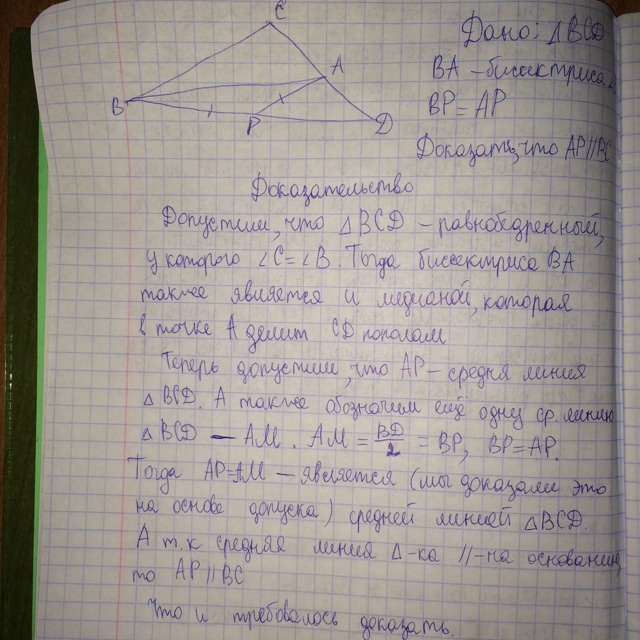 C
A
B
P
D
Дано: △BCD
BA – биссектриса
BP = AP
Доказать, что AP//BC
Доказательство
Допустим, что △BCD – равнобедренный,
у которого ∠C=∠B. Тогда биссектриса BA
также является и медианой, которая
в точке A делит CD пополам
Теперь допустим, что AP – средня линия
△BCD. А также обозначим ещё одну ср. линию
△BCD — AM. AM = BD/2 = BP, BP=AP.
Тогда AP=AM – является (мы доказали это
на основе допуска) средней линией △BCD.
А т.к средняя линия △-ка //-на основанию,
то AP//BC
Что и требовалось доказать.